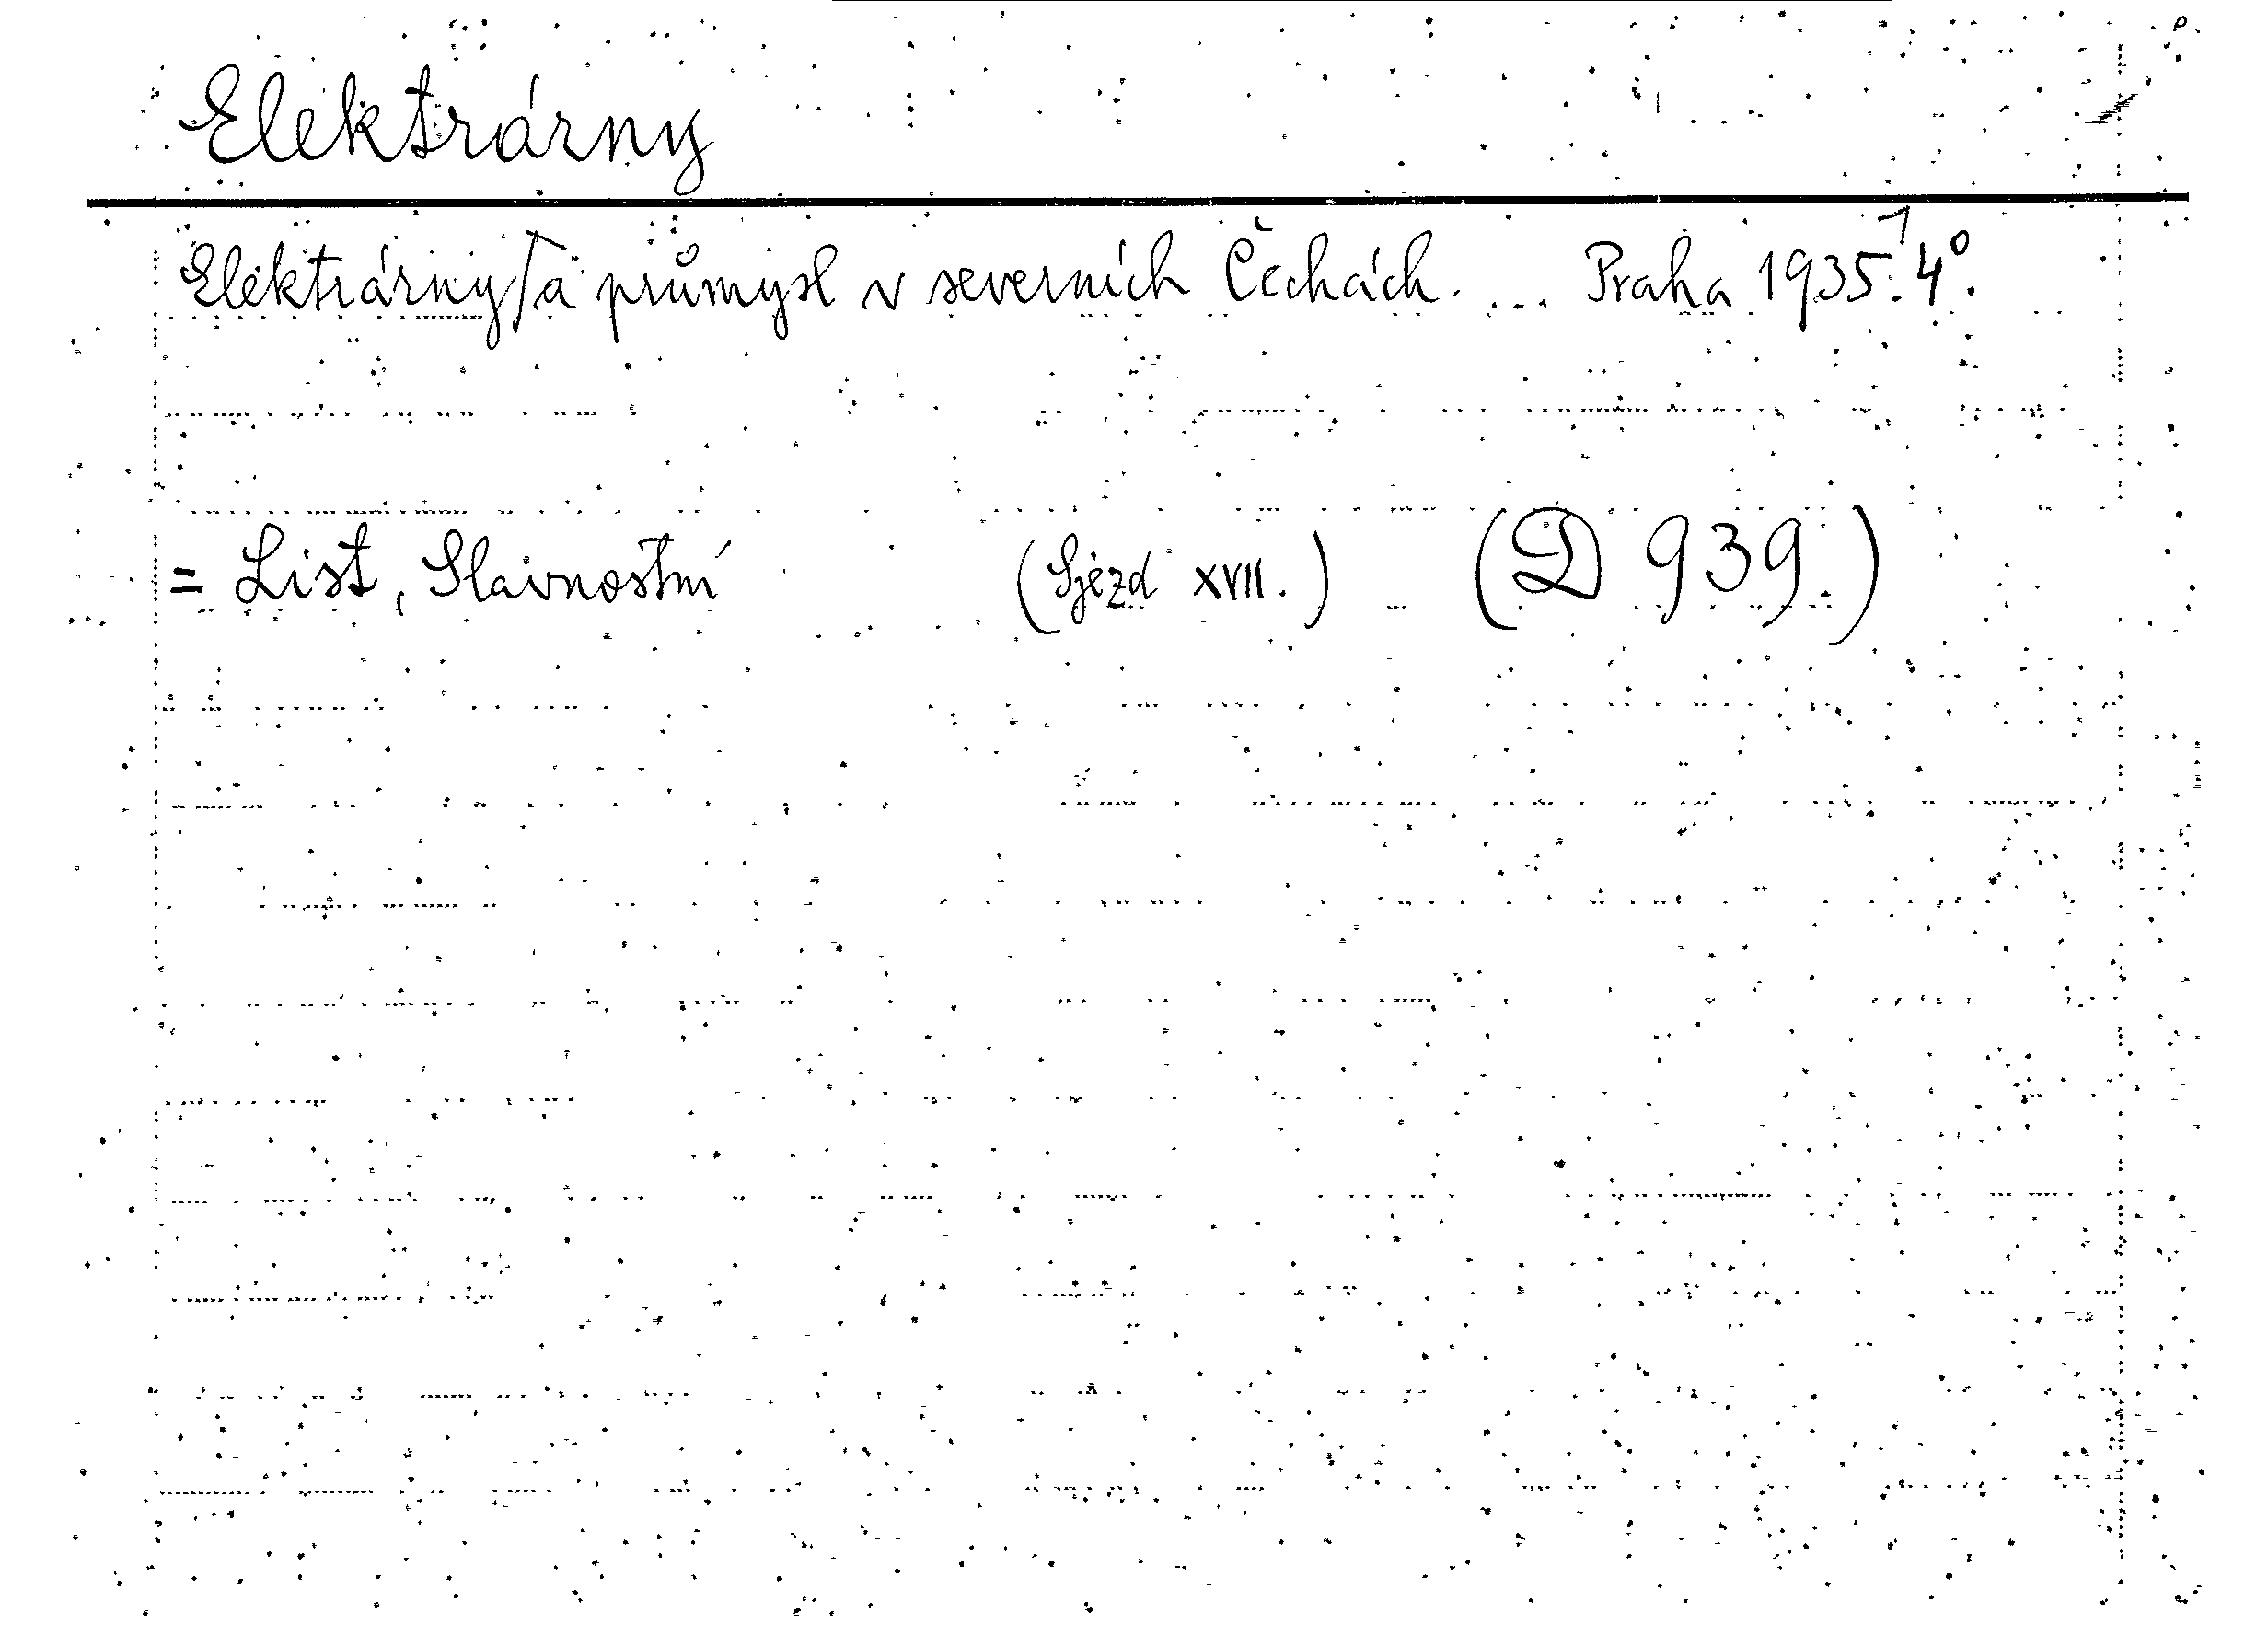 Elektrárny
Elektrárny a průmysl v severních Čechách. ... Praha 1935. 4°.
= List, Slavnostní (Sjezd XVII.) (D 939.)